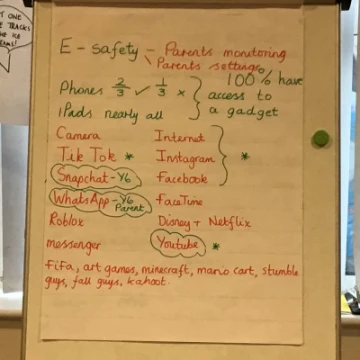 T ONE
E - safety - Parents monitoring
Parents settings
Phones 2/3 ✓ 1/3 ×
100% have
access to
a gadget
iPads nearly all
Camera Internet
Tik Tok * Instagram *
Snapchat - Y6 Facebook
WhatsApp - Y6 Parent FaceTime
Roblox Disney + Netflix
messenger Youtube *
Fifa, art games, minecraft, mario cart, stumble
guys, fall guys, kahoot.